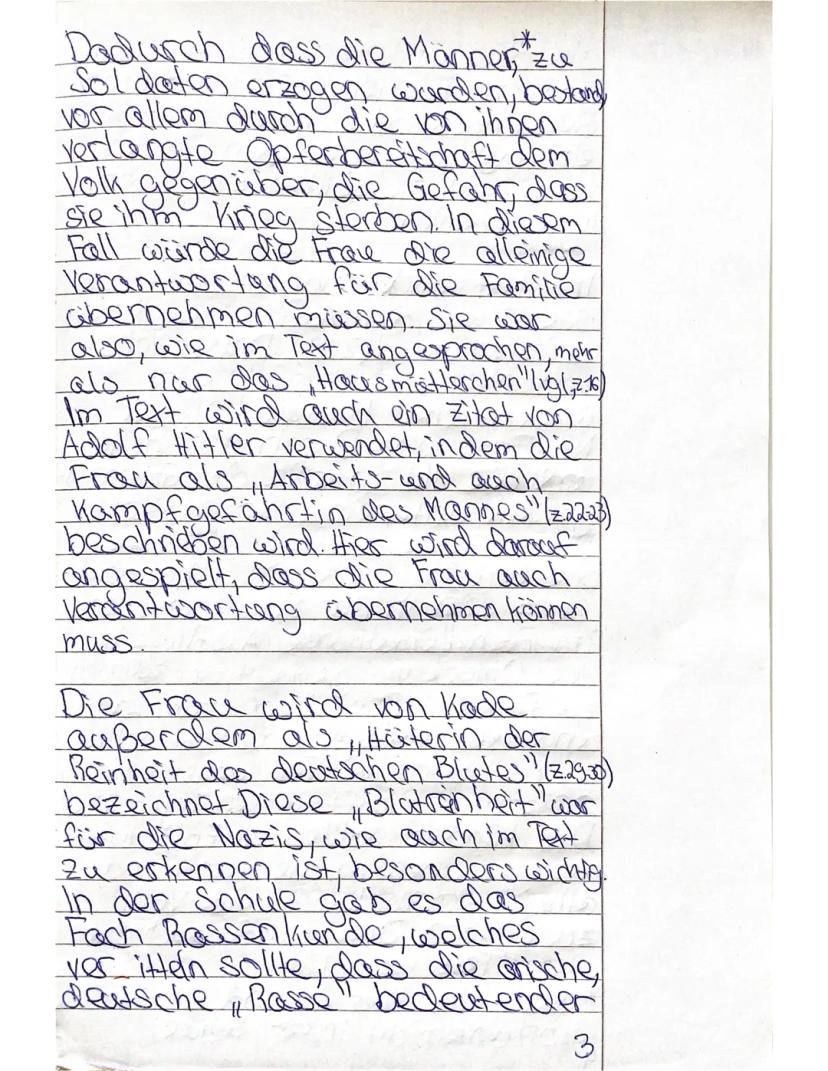 Dadurch dass die Männer,* zu
Soldaten erzogen wurden, bestand
vor allem durch die von ihnen
verlangte Opferbereitschaft dem
Volk gegenüber, die Gefahr, dass
sie ihm Krieg sterben. In diesem
Fall würde die Frau die alleinige
Verantwortung für die Familie
übernehmen müssen. Sie war
also, wie im Text angesprochen, mehr
als nur das „Hausmütterchen" (vgl. z.16)
Im Text wird auch ein Zitat von
Adolf Hitler verwendet, indem die
Frau als „Arbeits- und auch
Kampfgefährtin des Mannes" (z.22-23)
beschrieben wird. Hier wird darauf
angespielt, dass die Frau auch
Verantwortung übernehmen können
muss.
Die Frau wird von Kade
außerdem als „Hüterin der
Reinheit des deutschen Blutes" (z.29-30)
bezeichnet. Diese „Blutreinheit" war
für die Nazis, wie auch im Text
zu erkennen ist, besonders wichtig.
In der Schule gab es das
Fach Rassenkunde, welches
ver itteln sollte, dass die arische,
deutsche „Rasse" bedeutender
3